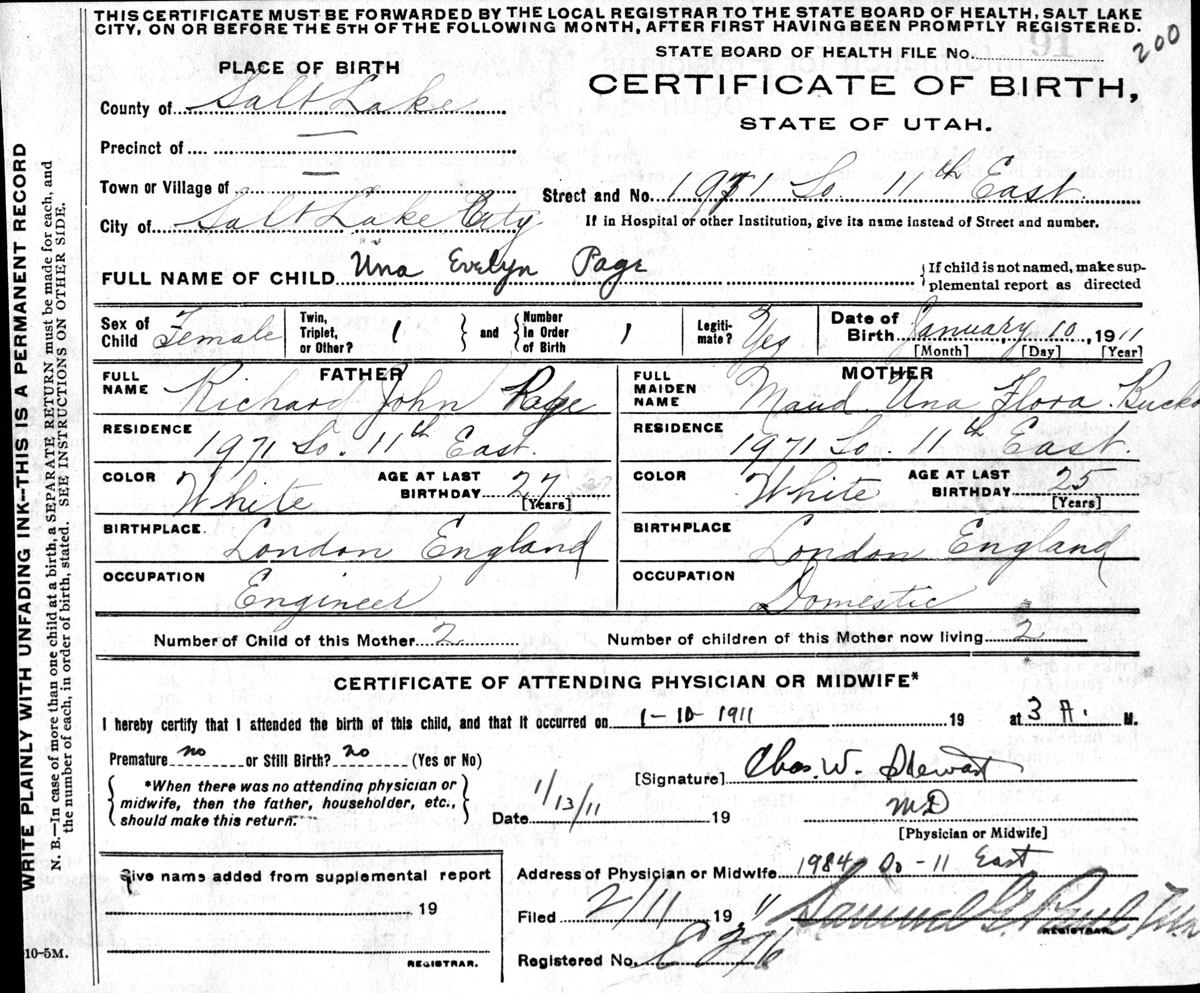 THIS CERTIFICATE MUST BE FORWARDED BY THE LOCAL REGISTRAR TO THE STATE BOARD OF HEALTH, SALT LAKE
CITY, ON OR BEFORE THE 5TH OF THE FOLLOWING MONTH, AFTER FIRST HAVING BEEN PROMPTLY REGISTERED.
200
STATE BOARD OF HEALTH FILE No.
PLACE OF BIRTH
CERTIFICATE OF BIRTH,
STATE OF UTAH.
County of Salt Lake
Precinct of —
Town or Village of —
Street and No. 1971 So. 11th East
City of Salt Lake City
If in Hospital or other Institution, give its name instead of Street and number.
FULL NAME OF CHILD Una Evelyn Page
{If child is not named, make sup-
plemental report as directed
Sex of Child Female
Twin, Triplet, or Other? 1 } and { Number in Order of Birth 1
Legiti-mate? Yes
Date of Birth January 10, 1911
[Month] [Day] [Year]
FATHER
FULL NAME Richard John Page
RESIDENCE 1971 So. 11th East.
COLOR White
AGE AT LAST BIRTHDAY 27
[Years]
BIRTHPLACE. London England
OCCUPATION Engineer
MOTHER
FULL MAIDEN NAME Maud Una Flora
RESIDENCE 1971 So. 11th East.
COLOR White
AGE AT LAST BIRTHDAY 25
[Years]
BIRTHPLACE London England
OCCUPATION Domestic
Number of Child of this Mother 2
Number of children of this Mother now living 2
CERTIFICATE OF ATTENDING PHYSICIAN OR MIDWIFE*
I hereby certify that I attended the birth of this child, and that it occurred on 1-10-1911 19 at 3 A. M.
Premature no or Still Birth? no (Yes or No)
*When there was no attending physician or
midwife, then the father, householder, etc.,
should make this return.
[Signature] Chas. W. Stewart
Date 1/13/11 19
MD
[Physician or Midwife]
Give name added from supplemental report
19
REGISTRAR.
Address of Physician or Midwife 1984 So - 11 East
Filed 2/11 19 11 Samuel G. Paul
REGISTRAR.
Registered No.
WRITE PLAINLY WITH UNFADING INK—THIS IS A PERMANENT RECORD
N. B.—In case of more than one child at a birth, a SEPARATE RETURN must be made for each, and
the number of each, in order of birth, stated. SEE INSTRUCTIONS ON OTHER SIDE.
10-5M.